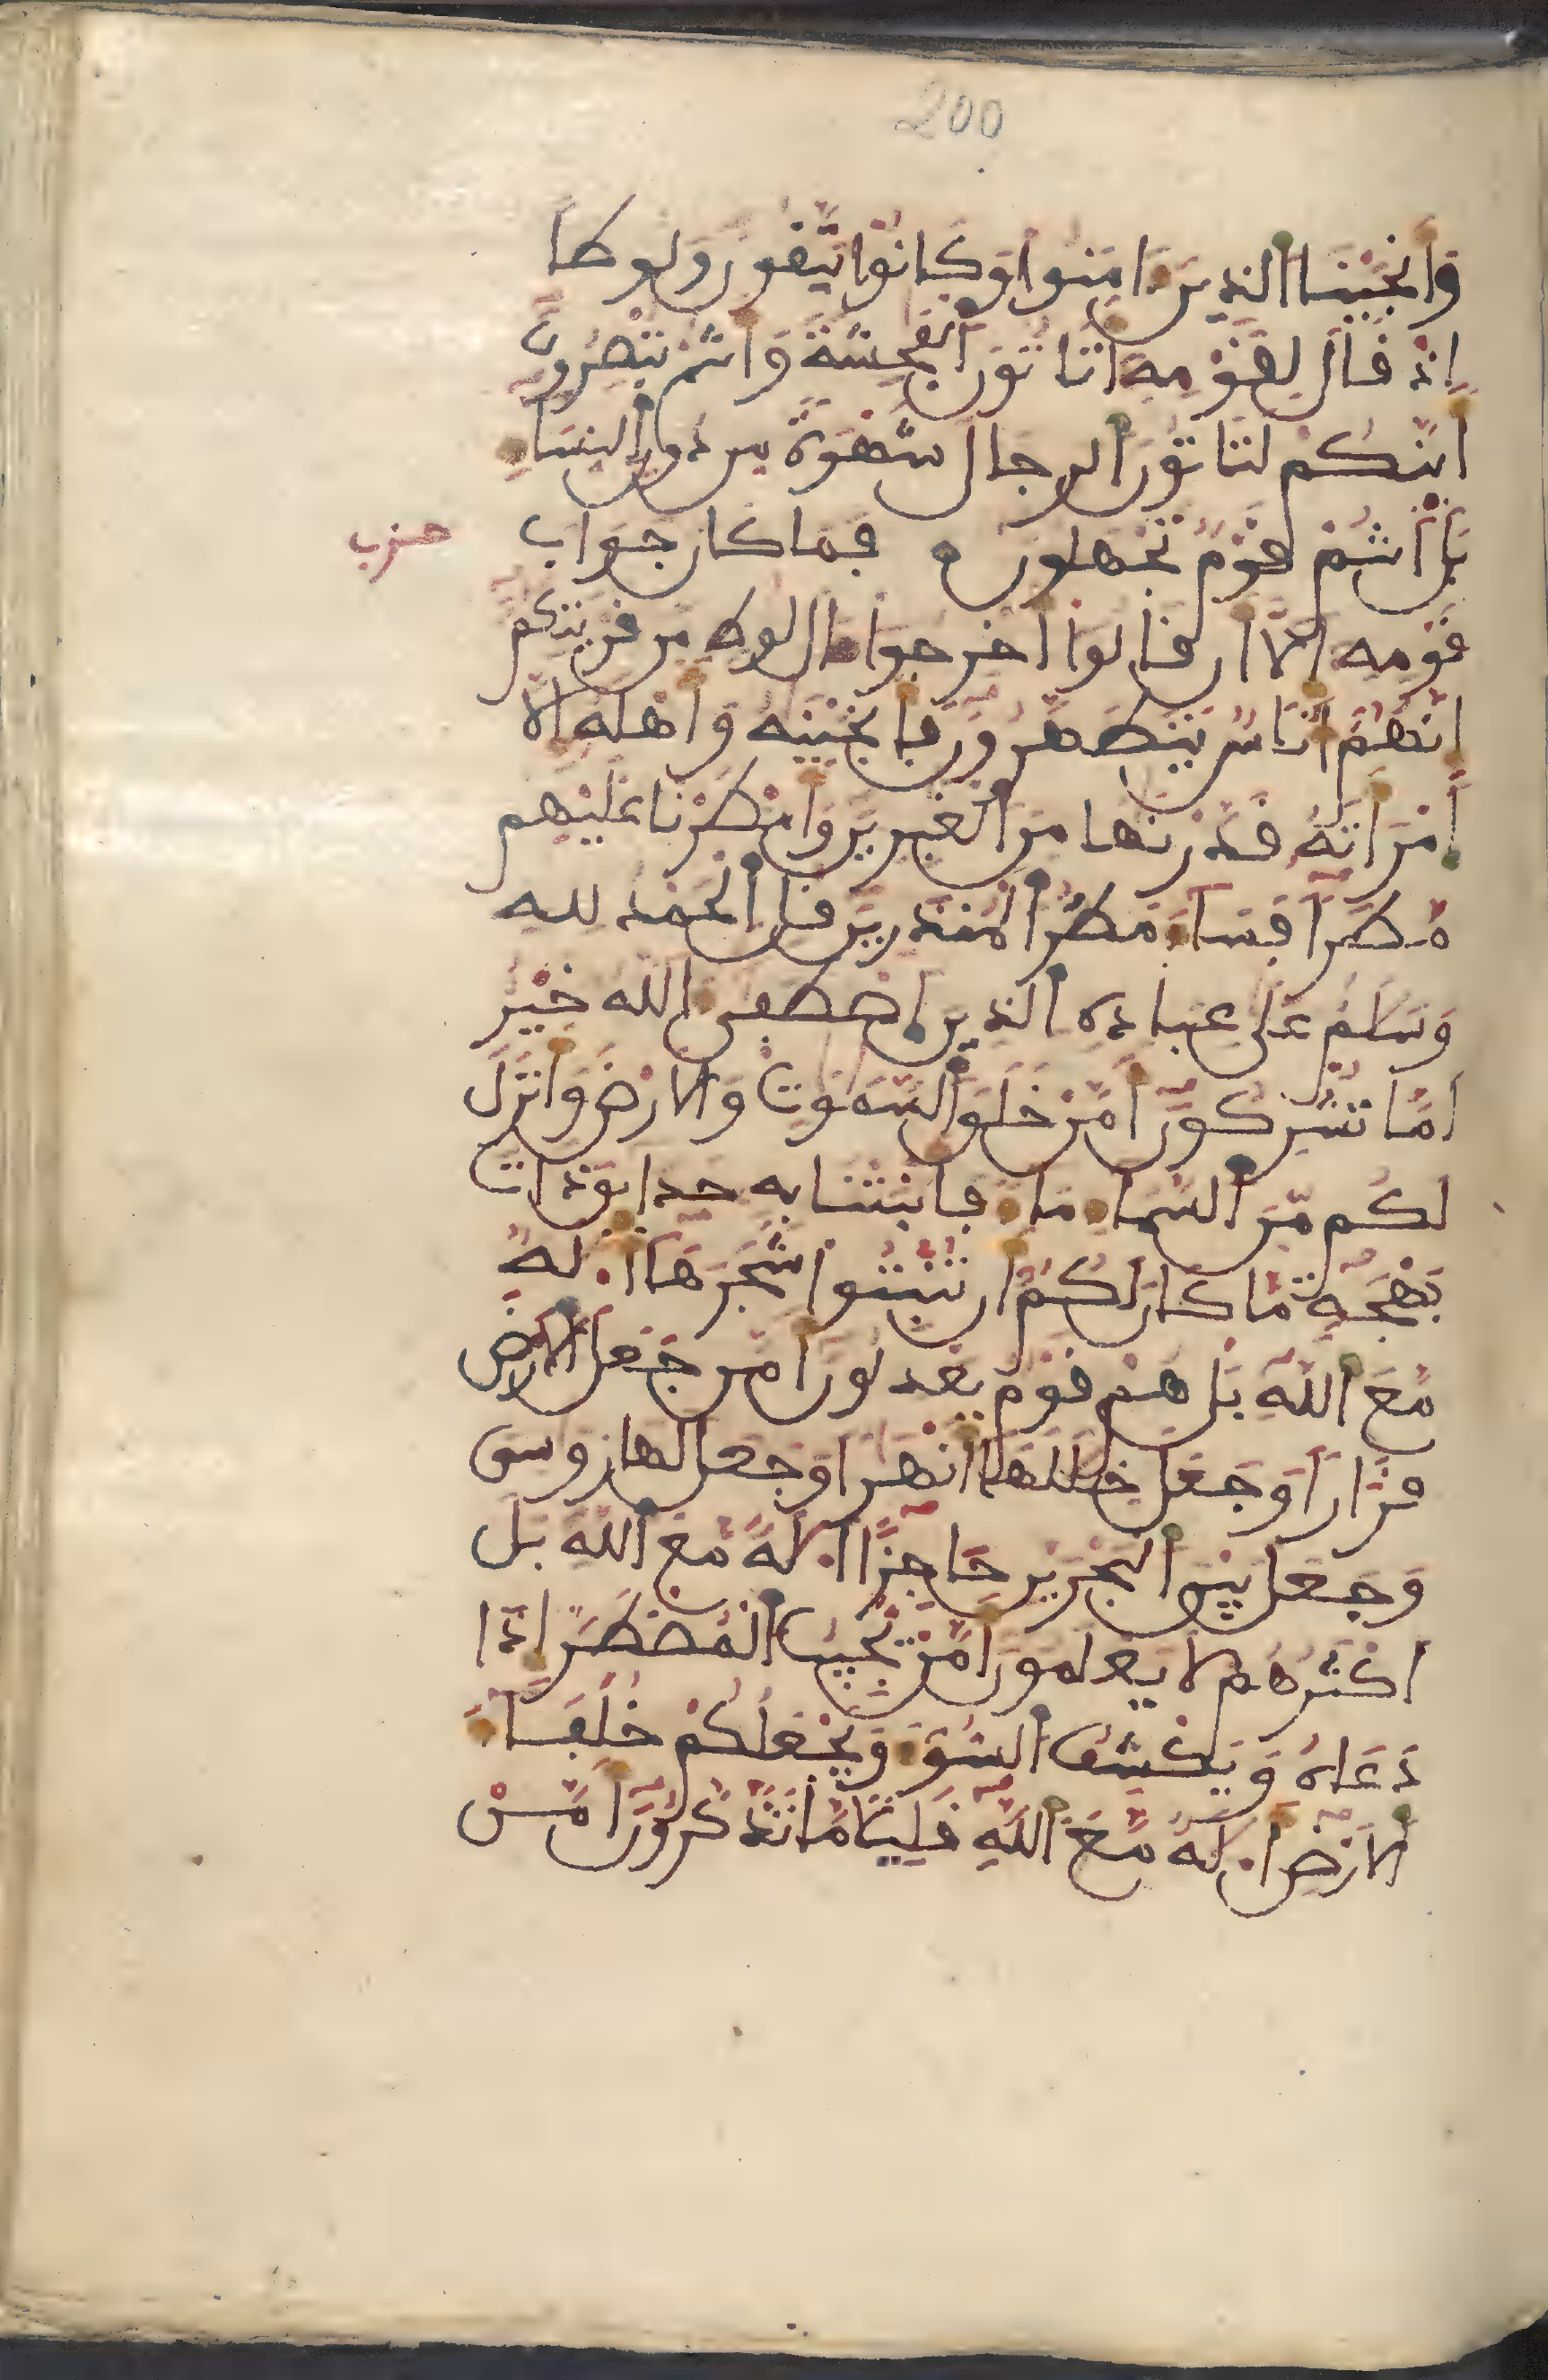 200
وَأَنجَيْنَا ٱلذِينَ ءَامَنُوا۟ وَكَانُوا۟ يَتَّقُونَ وَلُوطًا
إِذْ قَالَ لِقَوْمِهِۦ أَتَاتُونَ ٱلْفَٰحِشَةَ وَأَنتُمْ تُبْصِرُونَ
أَئِنَّكُمْ لَتَاتُونَ ٱلرِّجَالَ شَهْوَةً مِّن دُونِ ٱلنِّسَآءِ
بَلْ أَنتُمْ قَوْمٌ تَجْهَلُونَ فَمَا كَانَ جَوَابَ
حزب
قَوْمِهِۦ إِلَّا أَن قَالُوا۟ أَخْرِجُوا۟ ءَالَ لُوطٍ مِّن قَرْيَتِكُمْ
إِنَّهُمْ أُنَاسٌ يَتَطَهَّرُونَ فَأَنجَيْنَٰهُ وَأَهْلَهُ إِلَّا
ٱمْرَأَتَهُ قَدَّرْنَٰهَا مِنَ ٱلْغَٰبِرِينَ وَأَمْطَرْنَا عَلَيْهِم
مَّطَرًا فَسَآءَ مَطَرُ ٱلْمُنذَرِينَ قُلِ ٱلْحَمْدُ لِلهِ
وَسَلَٰمٌ عَلَىٰ عِبَادِهِ ٱلذِينَ ٱصْطَفَىٰ ءَآللَّهُ خَيْرٌ
أَمَّا تُشْرِكُونَ أَمَّنْ خَلَقَ ٱلسَّمَٰوَٰتِ وَٱلْأَرْضَ وَأَنزَلَ
لَكُم مِّنَ ٱلسَّمَآءِ مَآءً فَأَنبَتْنَا بِهِۦ حَدَائِقَ ذَاتَ
بَهْجَةٍ مَّا كَانَ لَكُمْ أَن تُنبِتُوا۟ شَجَرَهَا أَ.لَٰهٌ
مَّعَ ٱللَّهِ بَلْ هُمْ قَوْمٌ يَعْدِلُونَ أَمَّن جَعَلَ ٱلْأَرْضَ
قَرَارًا وَجَعَلَ خِلَٰلَهَا أَنْهَٰرًا وَجَعَلَ لَهَا رَوَٰسِىَ
وَجَعَلَ بَيْنَ ٱلْبَحْرَيْنِ حَاجِزًا أَ.لَٰهٌ مَّعَ ٱللَّهِ بَلَ
اَكْثَرُهُمْ لَا يَعْلَمُونَ أَمَّنْ يُّجِيبُ ٱلْمُضْطَرَّ إِذَا
دَعَاهُ وَيَكْشِفُ ٱلسُّوٓءَ وَيَجْعَلُكُمْ خُلَفَآءَ
ٱلْأَرْضِ أَ.لَٰهٌ مَّعَ ٱللَّهِ قَلِيلًا مَّا تَذَّكَّرُونَ أَمَّنْ